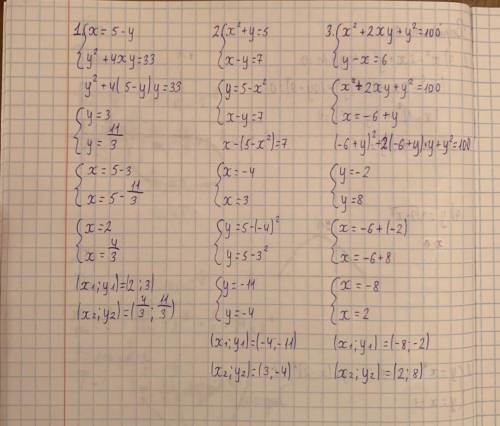 1. { x = 5 - y
y² + 4xy = 33
y² + 4(5 - y)y = 33
{ y = 3
y = 11/3
{ x = 5 - 3
x = 5 - 11/3
{ x = 2
x = 4/3
(x₁; y₁) = (2; 3)
(x₂; y₂) = (4/3; 11/3)
2. { x² + y = 5
x - y = 7
{ y = 5 - x²
x - y = 7
x - (5 - x²) = 7
{ x = -4
x = 3
{ y = 5 - (-4)²
y = 5 - 3²
{ y = -11
y = -4
(x₁; y₁) = (-4; -11)
(x₂; y₂) = (3; -4)
3. { x² + 2xy + y² = 100
y - x = 6
{ x² + 2xy + y² = 100
x = -6 + y
(-6 + y)² + 2(-6 + y)·y + y² = 100
{ y = -2
y = 8
{ x = -6 + (-2)
x = -6 + 8
{ x = -8
x = 2
(x₁; y₁) = (-8; -2)
(x₂; y₂) = (2; 8)